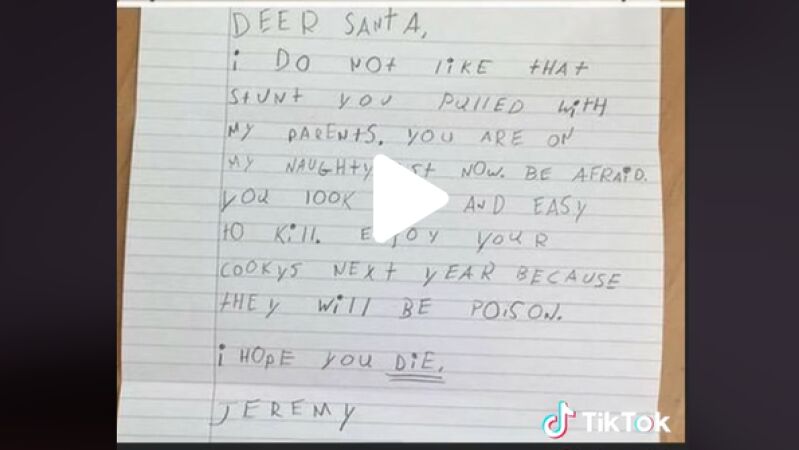 DEER SANTA,
i DO NOT liKE tHAt
StUNt yOU PUllED witH
My PARENtS. yOU ARE ON
My NAUGHty St NOW. BE AFRAiD.
yOU lOOK AND EASy
tO Kill. E OY yOUR
COOKyS NEXt yEAR BECAUSE
tHEy Will BE POiSON.
i HOPE yOU DiE.
JEREMY
TikTok